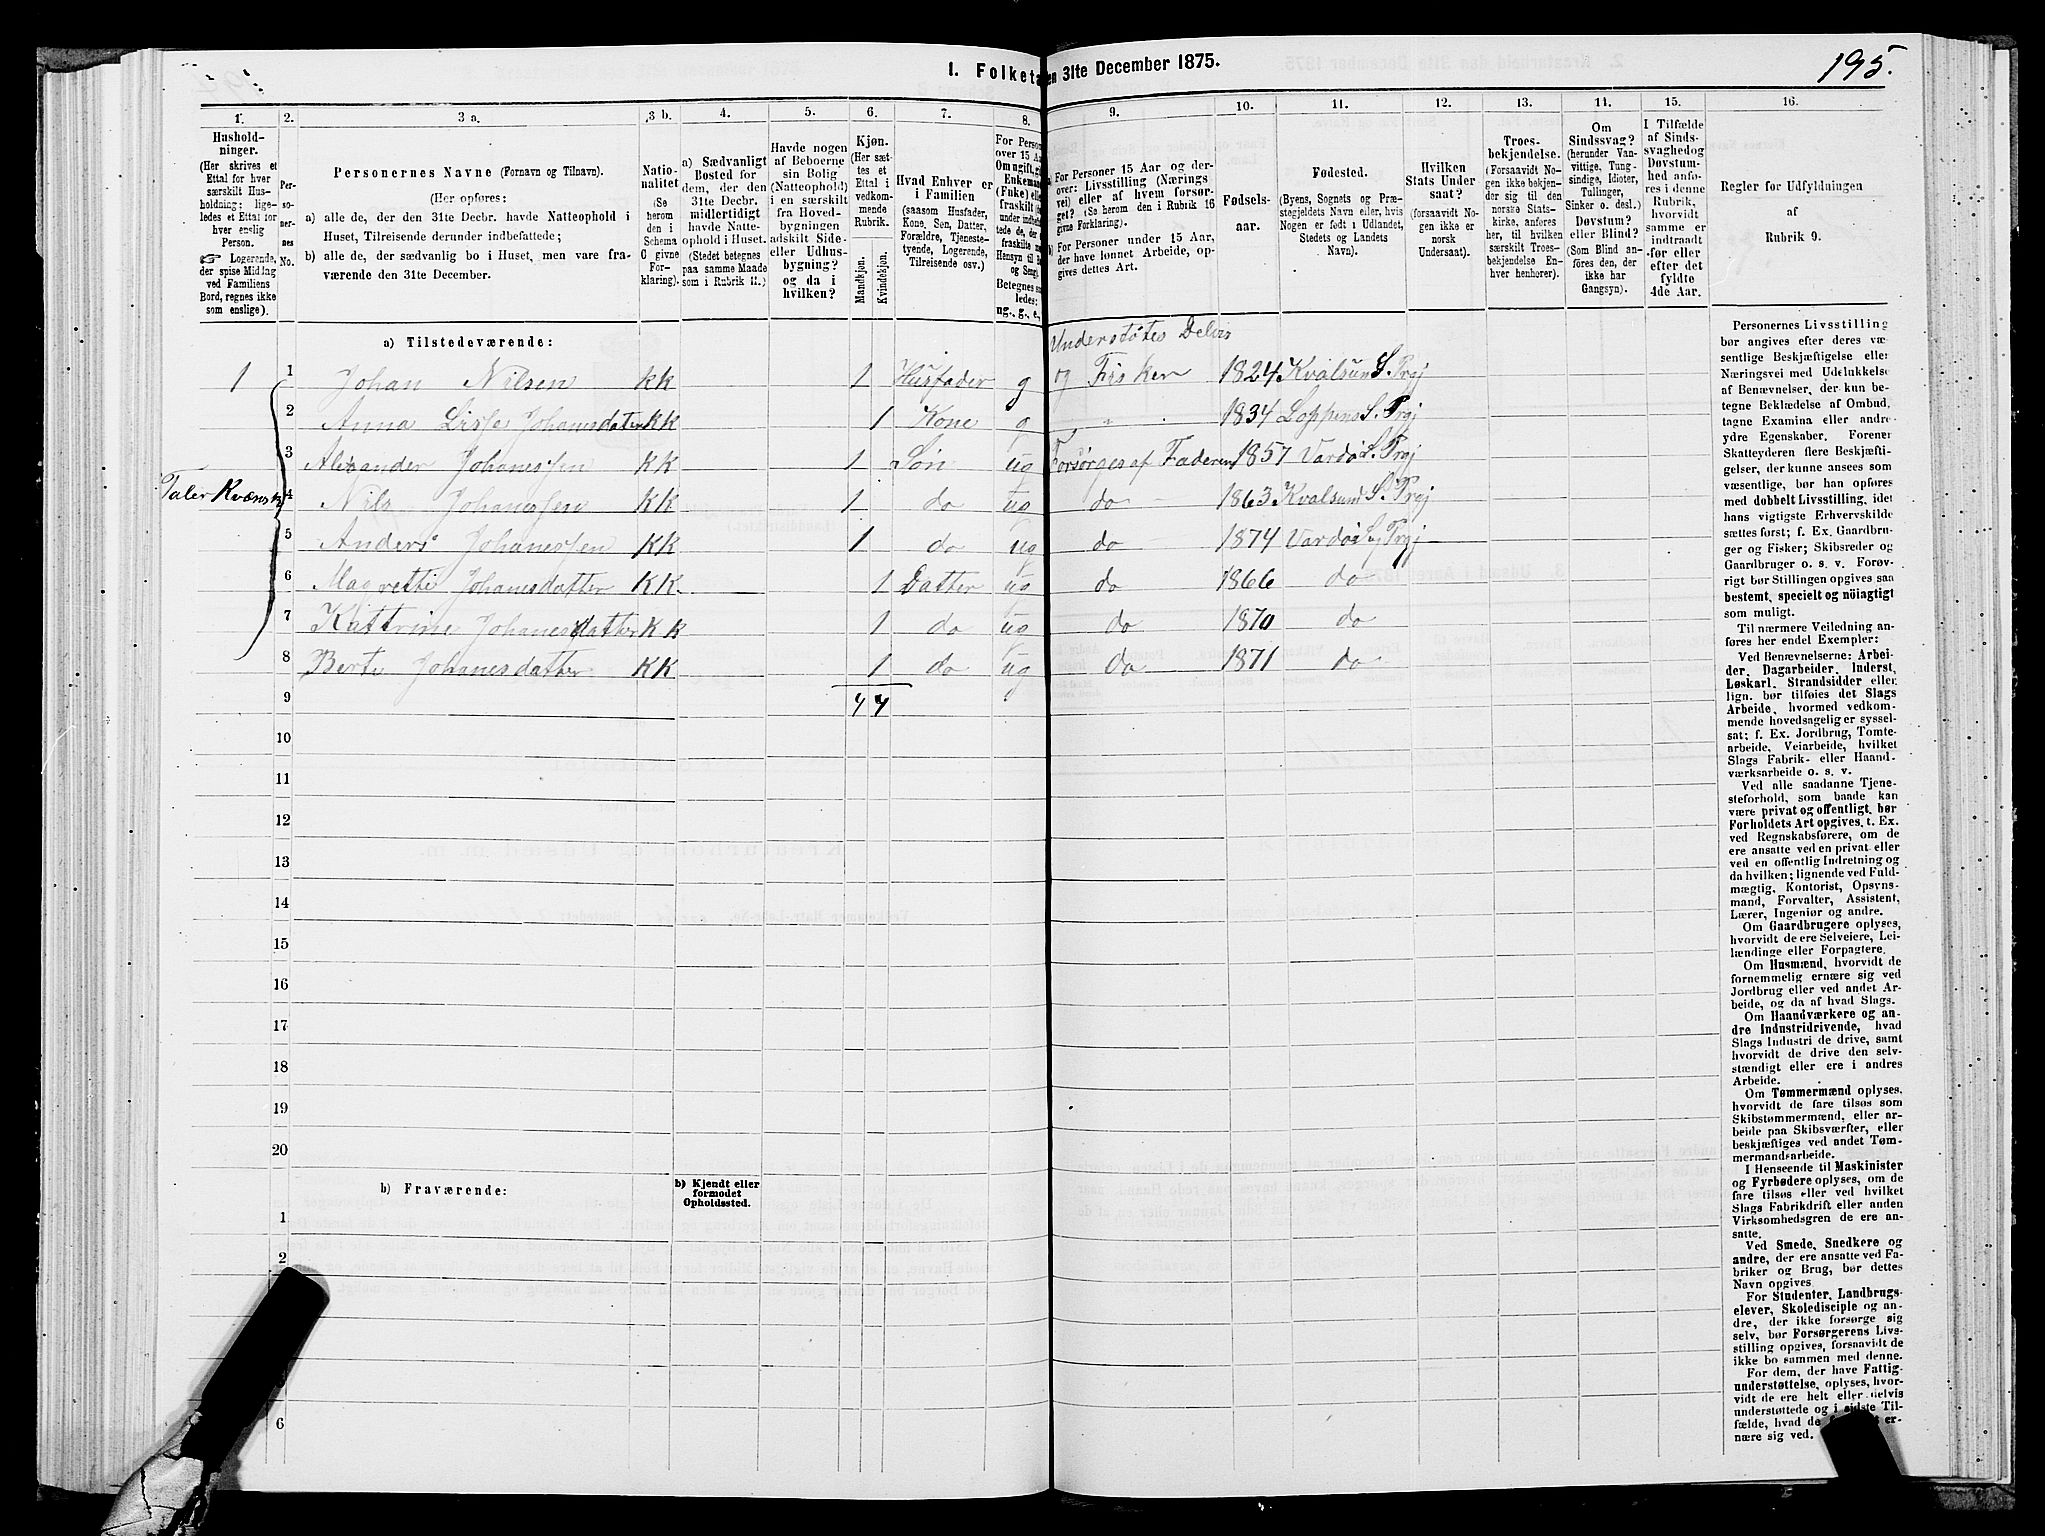 1. Folketa en 31te December 1875.
195.
1. 2. 3 a. 3 b. 4. 5. 6. 7. 8. 9. 10. 11. 12. 13. 14. 15. 16.
Hushold-
ninger.
(Her skrives et
Ettal for hver
særskilt Hus-
holdning; lige-
ledes et Ettal for
hver enslig
Person.
Logerende,
der spise Middag
ved Familiens
Bord, regnes ikke
som enslige).
Per-
so-
ner-
nes
No.
Personernes Navne (Fornavn og Tilnavn).
(Her opføres:
a) alle de, der den 31te Decbr. havde Natteophold i
Huset, Tilreisende derunder indbefattede;
b) alle de, der sædvanlig bo i Huset, men vare fra-
værende den 31te December.
Natio-
nalitet
(Se
herom
den i
Schema
C givne
For-
klaring).
a) Sædvanligt
Bosted for
dem, der den
31te Decbr.
midlertidigt
havde Natte-
ophold i Huset.
(Stedet betegnes
paa samme Maade
som i Rubrik 11.)
Havde nogen
af Beboerne
sin Bolig
(Natteophold)
i en særskilt
fra Hoved-
bygningen
adskilt Side-
eller Udhus-
bygning?
og da i
hvilken?
Kjøn.
(Her sæt-
tes et
Ettal i
vedkom-
mende
Rubrik.
Mandkjøn.
Kvindekjøn.
Hvad Enhver er
i Familien
(saasom Husfader,
Kone, Søn, Datter,
Forældre, Tjeneste-
tyende, Logerende,
Tilreisende osv.)
For Person
over 15 Aa
Om ugift, g
Enkeman
(Fnke) elle
fraskilt (
under indb
tede de, de
fraskilte
Hensyn til B
og Seng).
Betegnes sa
ledes:
ug., g., e.,
a) For Personer 15 Aar og der-
over: Livsstilling (Nærings
vei) eller af hvem forsør-
get? (Se herom den i Rubrik 16
givne Forklaring).
b) For Personer under 15 Aar,
der have lønnet Arbeide, op-
gives dettes Art.
Fødsels-
aar.
Fødested.
(Byens, Sognets og Præ-
stegjeldets Navn eller, hvis
Nogen er født i Udlandet,
Stedets og Landets
Navn).
Hvilken
Stats Under
saat?
(forsaavidt No-
gen ikke er
norsk
Undersaat).
Troes-
bekjendelse.
(Forsaavidt No-
gen ikke bekjen-
der sig til den
norske Stats-
kirke, anføres
her, til hvilken
særskilt Troes-
bekjendelse En-
hver henhører).
Om
Sindssvag?
(herunder Van-
vittige, Tung-
sindige, Idioter,
Tullinger,
Sinker o. desl.)
Døvstum?
eller Blind?
(Som Blind an-
føres den, der
ikke har
Gangsyn).
I Tilfælde
af Sinds-
svaghed og
Døvstum-
hed anfø-
res i denne
Rubrik,
hvorvidt
samme er
indtraadt
før eller
efter det
fyldte
4de Aar.
Regler for Udfyldningen
af
Rubrik 9.
a) Tilstedeværende:
Understøtes Delvis
1 1 Johan Nilsen KK 1 Husfader g og Fisker 1824 Kvalsund S. Prgj
2 Anna Lisse Johanesdater KK 1 Kone g " 1834 Loppens S. Prgj
3 Alexander Johanessen KK 1 Søn ug Forsørges af Faderen 1857 Vardø S. Prgj
Taler Kvænsk 4 Nils Johanessen KK 1 do ug do 1863 Kvalsund S. Prgj
5 Anders Johanessen KK 1 do ug do 1874 Vardø S. Prgj
6 Magrette Johanesdatter KK. 1 Datter ug do 1866 do
7 Kattrine Johanesdatter KK 1 do ug do 1870 do
8 Berte Johanesdatter KK 1 do ug do 1871 do
9 4 4
10
11
12
13
14
15
16
17
18
19
20
b) Fraværende:
b) Kjendt eller
formodet
Opholdssted.
1
2
6
Personernes Livsstilling
bør angives efter deres væ
sentlige Beskjæftigelse eller
Næringsvei med Udelukkelse
af Benævnelser, der kun be-
tegne Beklædelse af Ombud,
tagne Examina eller andre
ydre Egenskaber. Forener
Skatteyderen flere Beskjæfti-
gelser, der kunne ansees som
væsentlige, bør han opføres
med dobbelt Livsstilling, idet
hans vigtigste Erhvervskilde
sættes først; f. Ex. Gaardbru-
ger og Fisker; Skibsreder og
Gaardbruger o. s. v. Forøv-
rigt bør Stillingen opgives saa
bestemt, specielt og nöiagtigt
som muligt.
Til nærmere Veiledning an-
føres her endel Exempler:
Ved Benævnelserne: Arbei-
der, Dagarbeider, Inderst,
Løskarl, Strandsidder eller
lign. bør tilføies det Slags
Arbeide, hvormed vedkom-
mende hovedsagelig er syssel-
sat; f. Ex. Jordbrug, Tomte-
arbeide, Veiarbeide, hvilket
Slags Fabrik- eller Haand-
værksarbeide o. s. v.
Ved alle saadanne Tjene-
steforhold, som baade kan
være privat og offentligt, bør
Forholdets Art opgives, t. Ex.
ved Regnskabsførere, om de
ere ansatte ved en privat eller
ved en offentlig Indretning og
da hvilken; lignende ved Fuld-
mægtig, Kontorist, Opsyns-
mand, Forvalter, Assistent,
Lærer, Ingeniør og andre.
Om Gaardbrugere oplyses,
hvorvidt de ere Selveiere, Lei-
lændinge eller Forpagtere.
Om Husmænd, hvorvidt de
fornemmelig ernære sig ved
Jordbrug eller ved andet Ar-
beide, og da af hvad Slags.
Om Haandværkere og an-
dre Industridrivende, hvad
Slags Industri de drive, samt
hvorvidt de drive den selv-
stændigt eller ere i andres
Arbeide.
Om Tømmermænd oplyses,
hvorvidt de fare tilsøs som
Skibstømmermænd, eller ar-
beide paa Skibsværfter, eller
beskjæftiges ved andet Tøm-
mermandsarbeide.
I Henseende til Maskinister
og Fyrbødere oplyses, om de
fare tilsøs eller ved hvilket
Slags Fabrikdrift eller anden
Virksomhedsgren de ere an-
satte.
Ved Smede, Snedkere og
andre, der ere ansatte ved Fa-
briker og Brug, bør dettes
Navn opgives
For Studenter, Landbrugs-
elever, Skoledisciple og an-
dre, der ikke forsørge sig
selv, bør Forsørgerens Livs-
stilling opgives, forsaavidt de
ikke bo sammen med denne.
For dem, der have Fattig-
understøttelse, oplyses, hvor-
vidt de ere helt eller delvis
understøttede og i sidste Til-
fælde, hvad de f er-
nære sig ved.